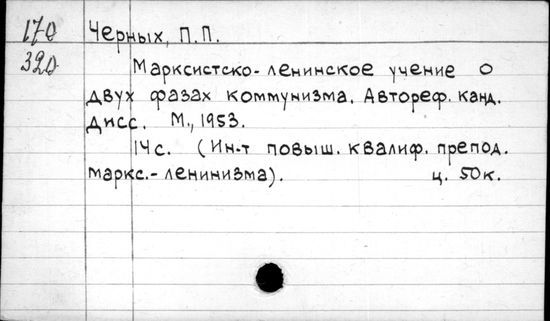 170 Черных, П.П.
320 Марксистско-ленинское учение о
двух фазах коммунизма. Автореф. канд.
дисс. М., 1953.
14с. (Ин-т повыш. квалиф. препод.
маркс.-ленинизма). ц. 50к.